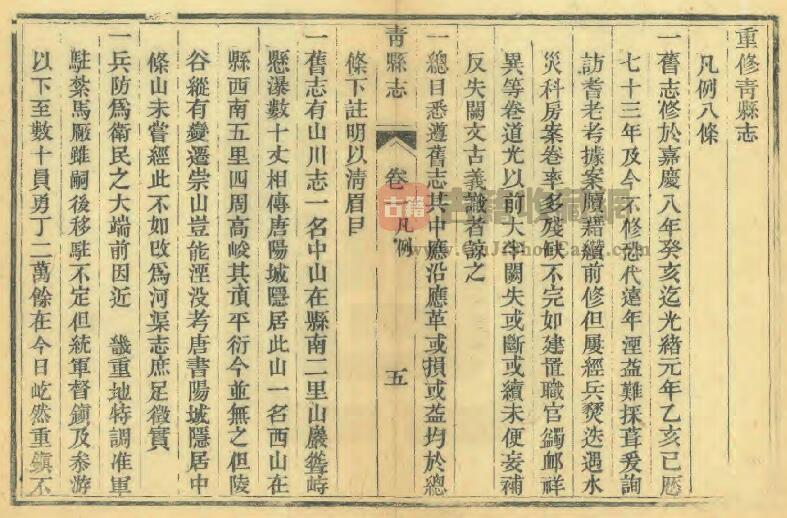 重修青縣志
凡例八條
一舊志修於嘉慶八年癸亥迄光緒元年乙亥已歷
七十三年及今不修恐代遠年湮益難探葺爰詢
訪耆老考據案牘藉續前修但屢經兵燹迭遇水
災科房案卷率多殘缺不完如建置職官蠲䘏祥
異等卷道光以前大半闕失或斷或續未便妄補
反失闕文古義識者諒之
一總目悉遵舊志其中應沿應革或損或益均於總
青縣志
卷
凡例
五
條下註明以清眉目
一舊志有山川志一名中山在縣南二里山巖聳峙
懸瀑數十丈相傳唐陽城隱居此山一名西山在
縣西南五里四周高峻其頂平衍今並無之但陵
谷縱有變遷崇山豈能湮没考唐書陽城隱居中
條山未嘗經此不如改爲河渠志庶足徵實
一兵防爲衛民之大端前因近 畿重地特調准軍
駐紮馬厰雖嗣後移駐不定但統軍督鎮及叅游
以下至數十員勇丁二萬餘在今日屹然重鎮不
古籍
古籍收藏网
www.GuJiShouCang.com